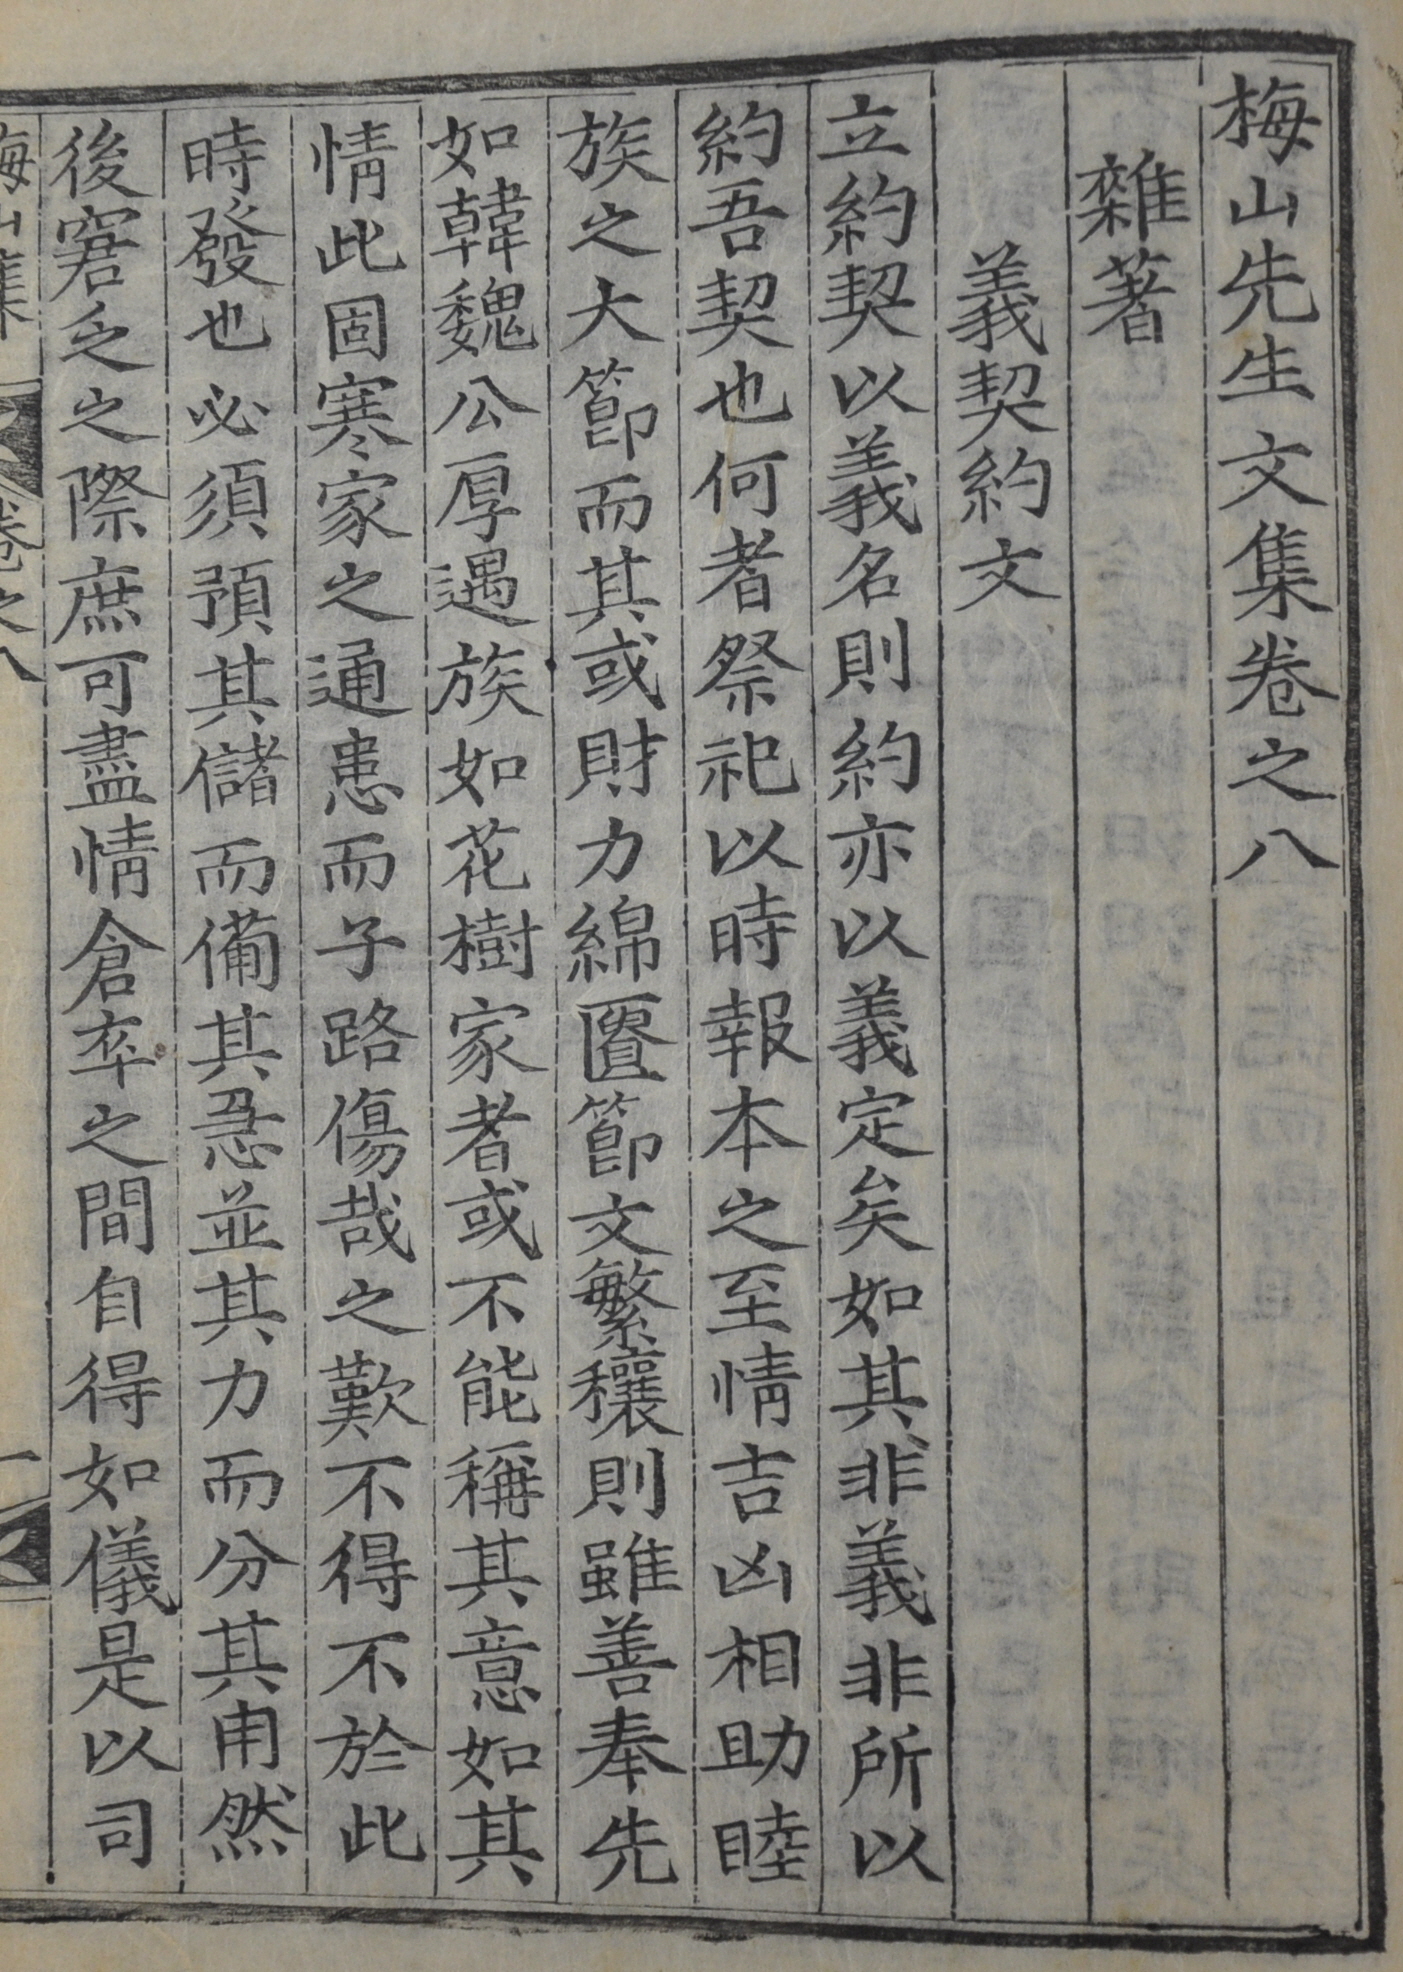 梅山先生文集卷之八
雜著
義契約文
立約契以義名則約亦以義定矣如其非義非所以
約吾契也何者祭祀以時報本之至情吉凶相助睦
族之大節而其或財力綿匱節文繁穰則雖善奉先
如韓魏公厚遇族如花樹家者或不能稱其意如其
情此固寒家之通患而子路傷哉之歎不得不於此
時發也必須預其儲而備其忍並其力而分其用然
後窘乏之際庶可盡情倉卒之間自得如儀是以司
梅山集
卷之八
一